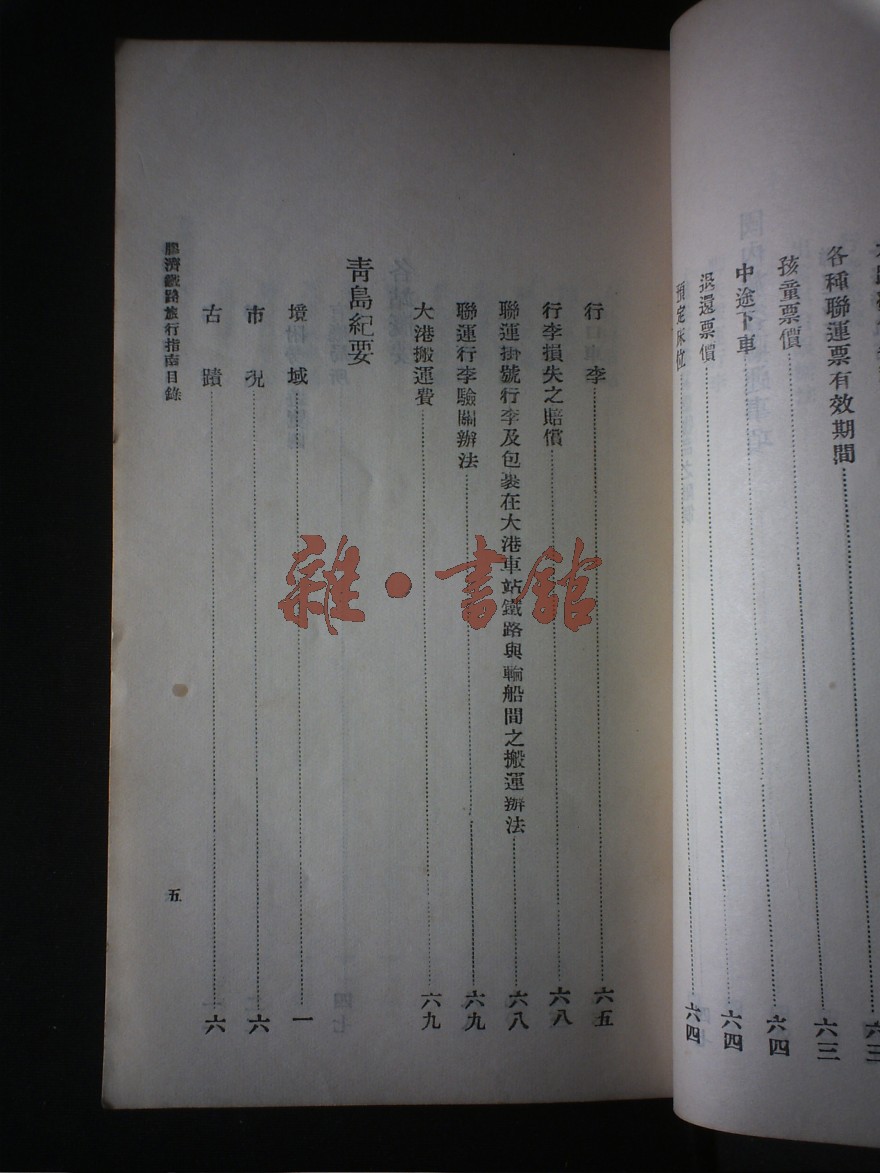 各種聯運票有效期間 六三
孩童票價 六四
中途下車 六四
退還票價 六四
行李 六五
行李損失之賠償 六八
聯運掛號行李及包裹在大港車站鐵路與輪船間之搬運辦法 六八
聯運行李驗關辦法 六九
大港搬運費 六九
青島紀要
境域 一
市況 六
古蹟 一六
膠濟鐵路旅行指南目錄
五
雜·書館